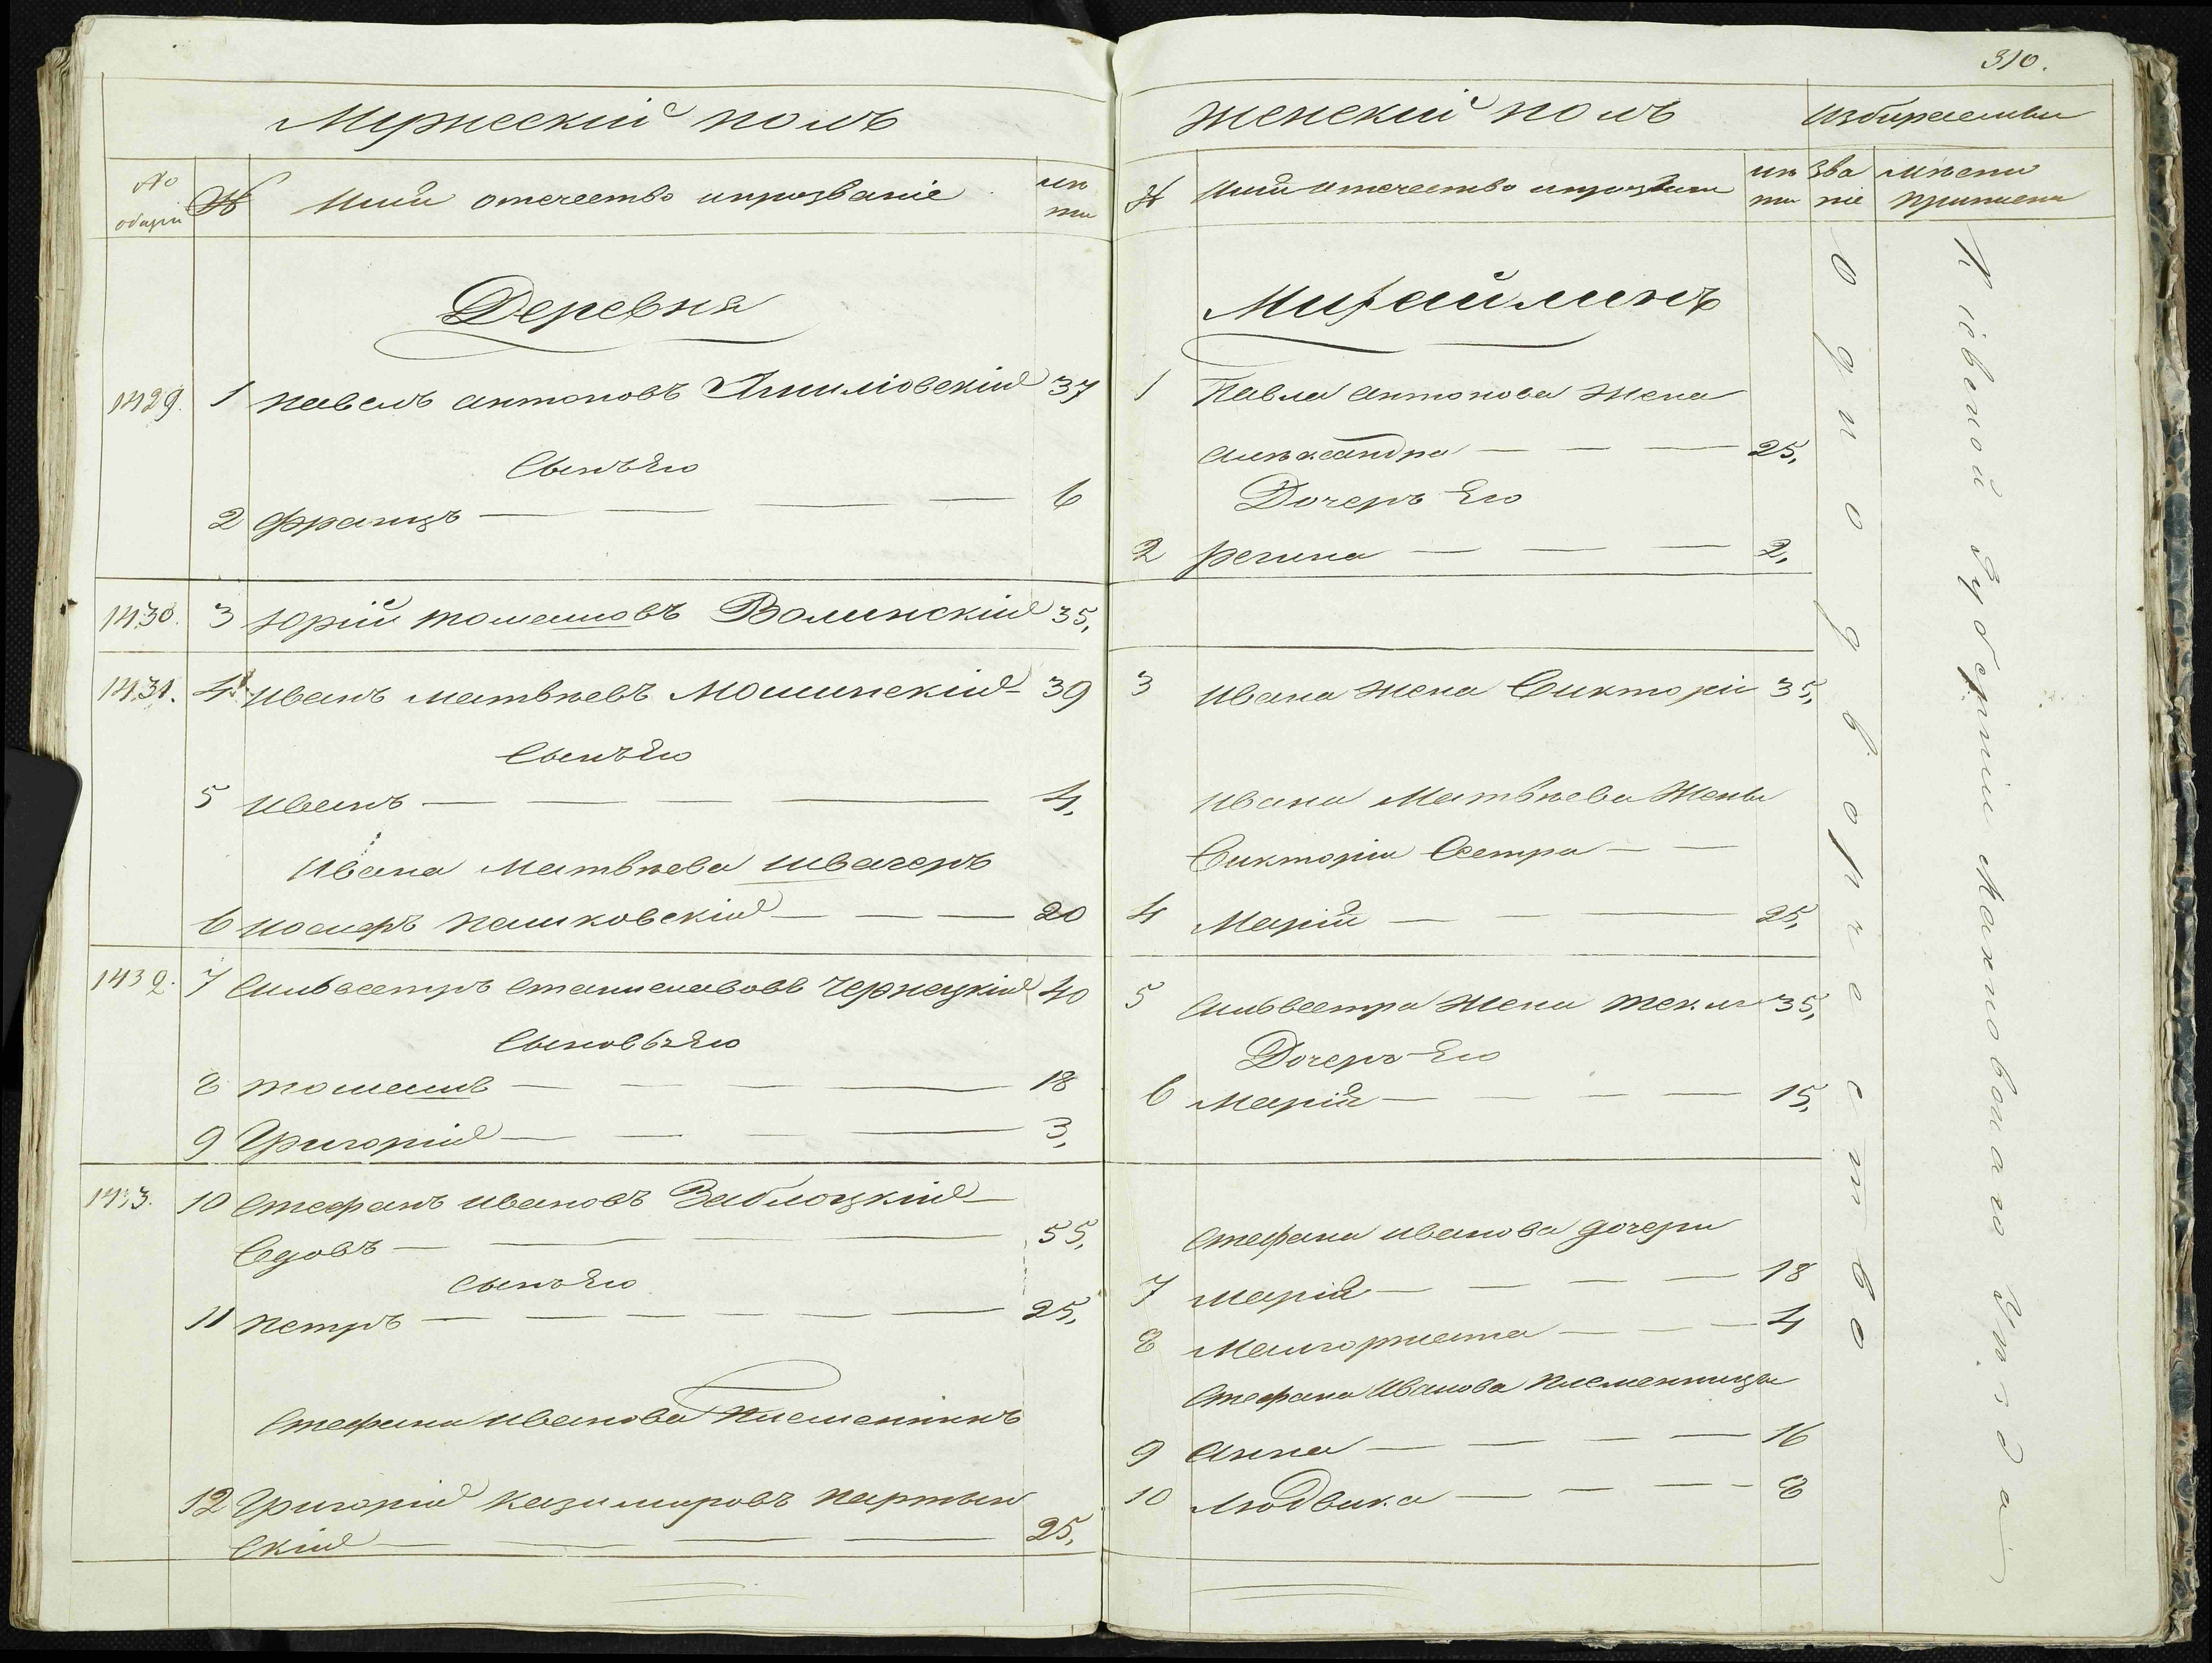 Мужескій полъ
№ общій
№
Имя отечество ипрозваніе
лѣта
Деревня
1429. 1 павелъ антоновъ 37
Сынъ Его
2 францъ — — — — 6
1430. 3 Юрій томашовъ Волинскій 35,
1431. 4 иванъ матвѣевъ Мошинскій 39
Сынъ Его
5 иванъ — — — — 4,
Ивана Матвѣева швагеръ
6 иосифъ пашковскій — — — 20
1432. 7 Сильвестръ станиславовъ Чернецкій 40
Сыновья Его
8 томашъ — — — — 18
9 Григорій — — — — 3,
1433. 10 Стефанъ ивановъ Заблоцкій
Вдовъ — — — — 55,
сынъ Его
11 петръ — — — — — 25,
Стефана иванова Племенникъ
12 Григорій казимировъ партын
скій — — — — 25,
310.
женскій полъ
№
Имя отечество ипрозваніе
лѣта
зва ніе
Михайлинъ
1 Павла антонова жена
александра — — — 25,
Дочерь Его
2 регина — — — 2,
3 Ивана жена Викторія 35,
Ивана Матвѣева Жены
Викторіи Сестра — —
4 Марія — — — 25,
5 Сильвестра жена текля 35,
Дочерь Его
6 Марія — — — — 15,
Стефана иванова дочери
7 марія — — — — 18
8 Малгоржата — — — 4
Стефана Иванова племенницы
9 анна — — — — 16
10 людвика — — — — 8
однодворчество
Кіевской Губерніи Махновскаго Уѣзда